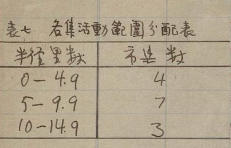 表七 各集活動範圍分配表
半径里数 市集数
0-4.9 4
5-9.9 7
10-14.9 3